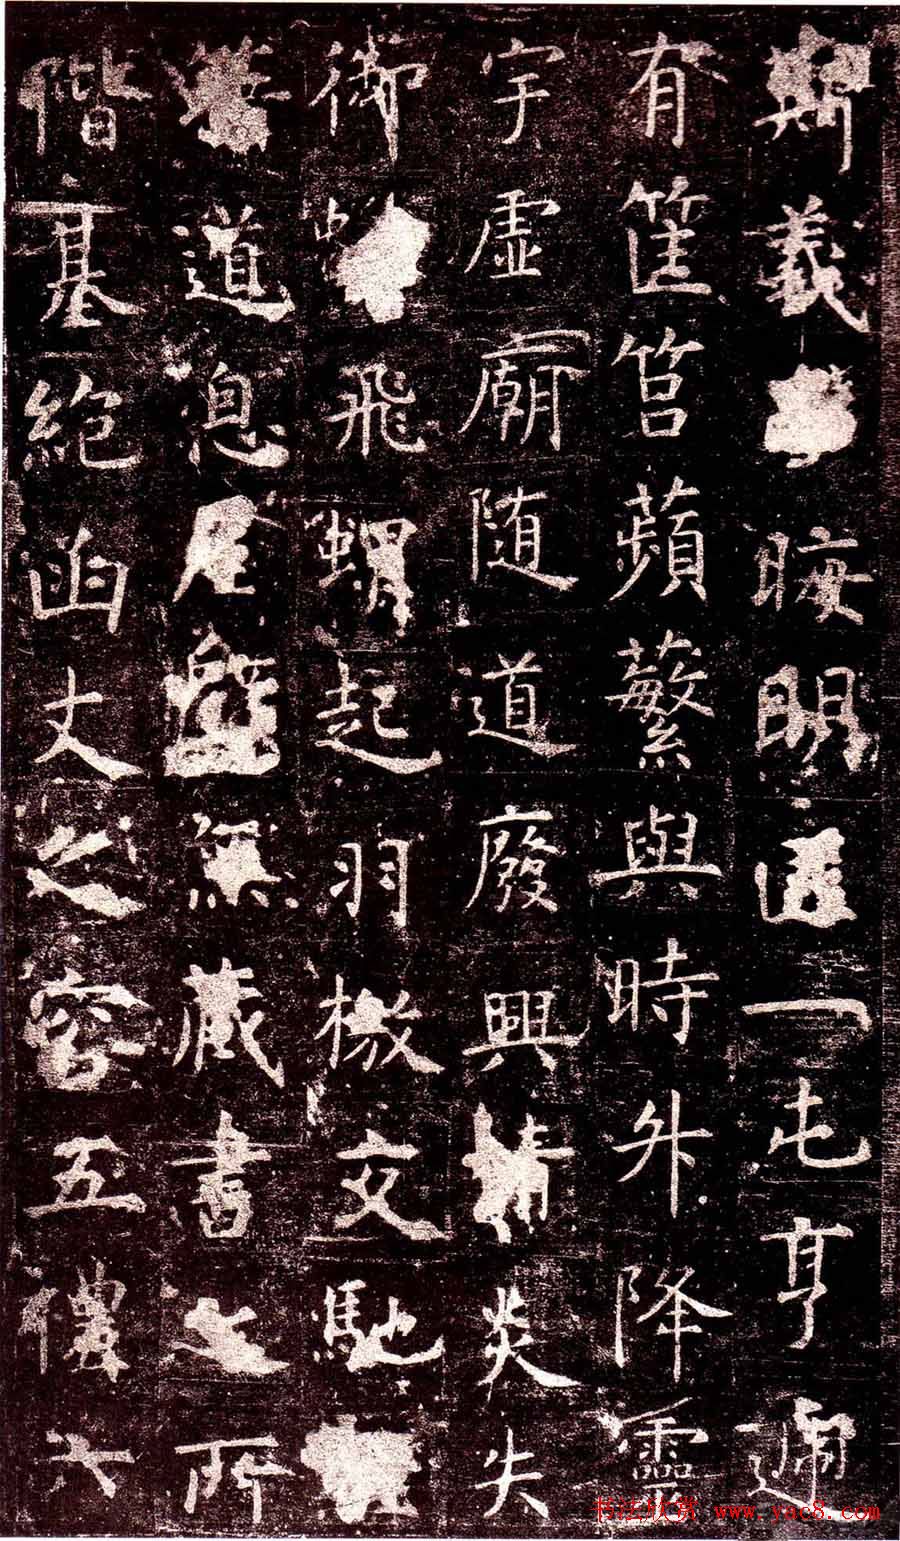 斯義晦明匪一屯亨遞
有筐筥蘋蘩與時升降靈
宇虛廟隨道廢興精炎失
御飛蝟起羽檄交馳
道息屋壁無藏書之所
階基絕函丈之容五禮六
书法欣赏 www.yac8.com